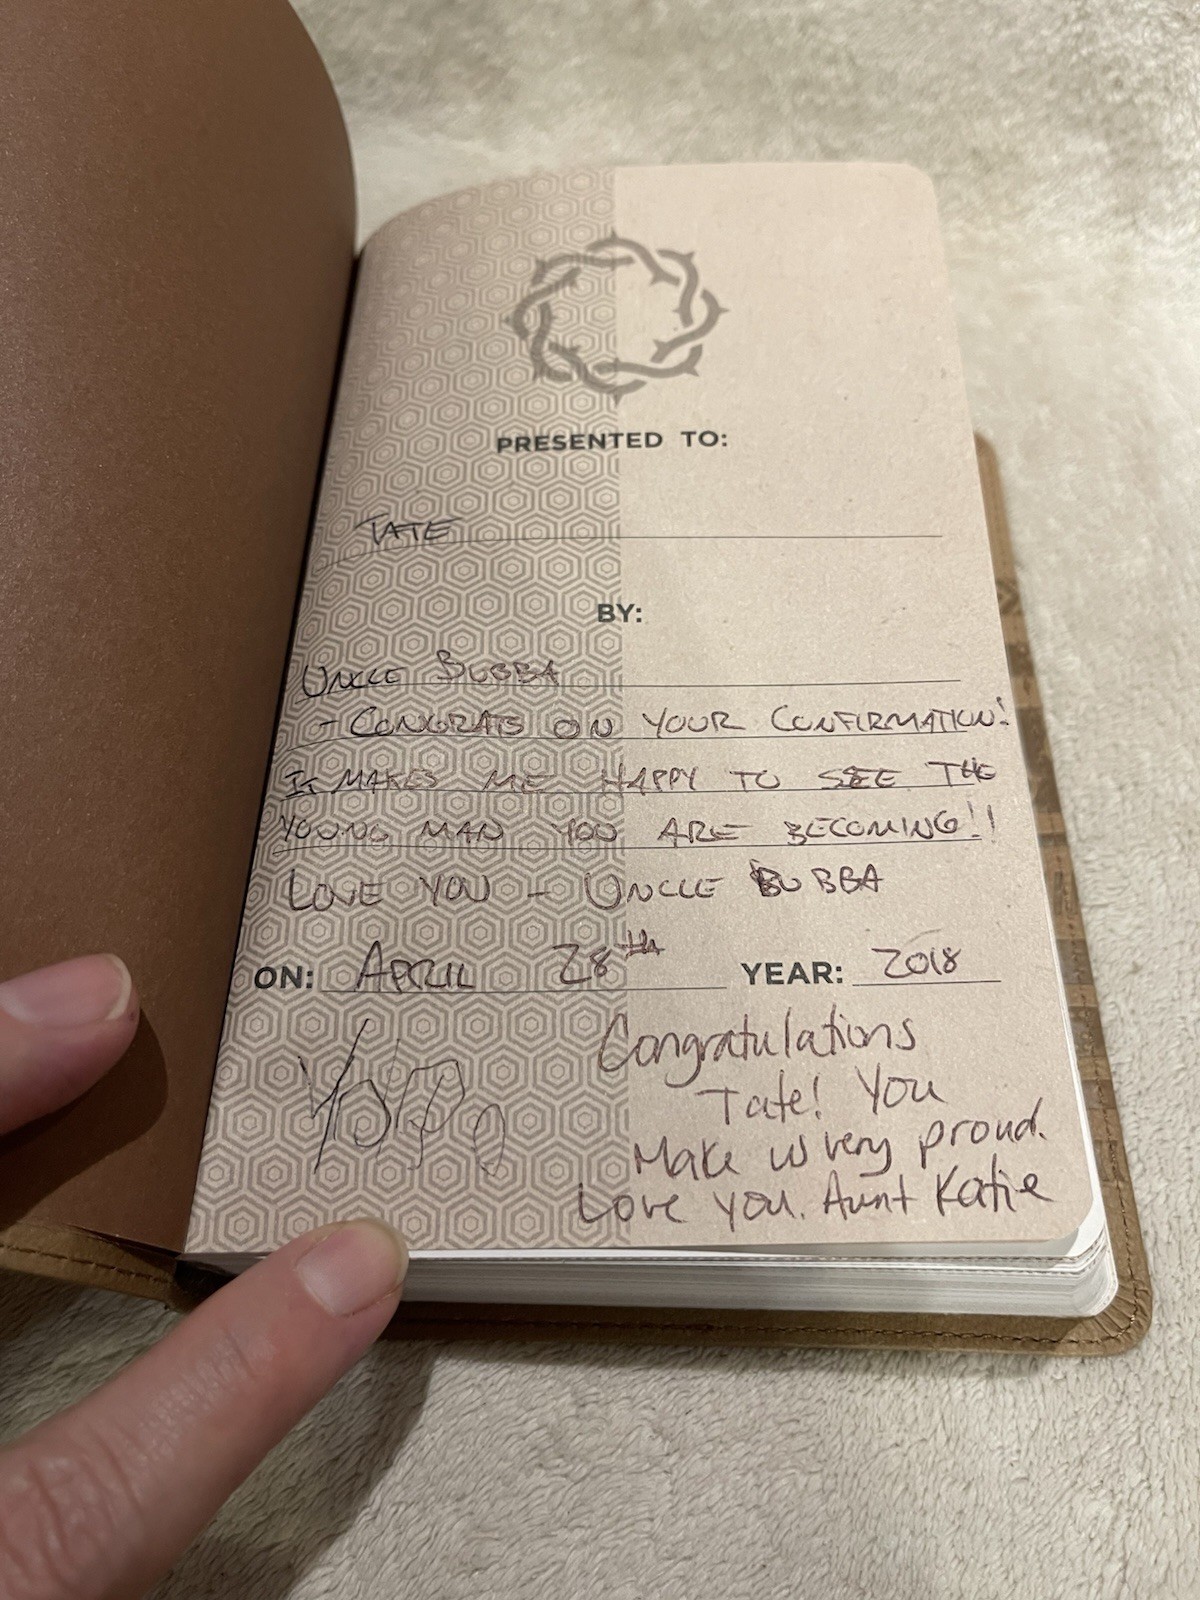 PRESENTED TO:
TATE
BY:
UNCLE BUBBA
- CONGRATS ON YOUR CONFIRMATION!
IT MAKES ME HAPPY TO SEE THE
YOUNG MAN YOU ARE BECOMING!!
LOVE YOU - UNCLE BUBBA
ON: APRIL 28th YEAR: 2018
Congratulations
Tate! You
Make us very proud.
Love you. Aunt Katie